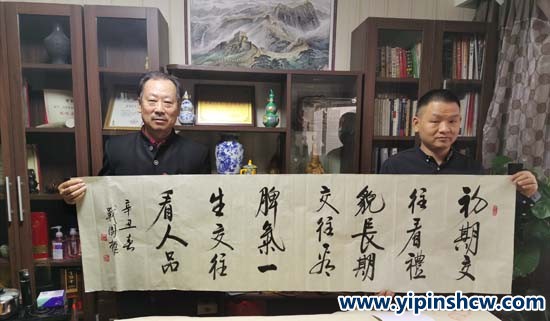 初期交
往看禮
貌長期
交往看
脾氣一
生交往
看人品
辛丑春
www.yipinshcw.com